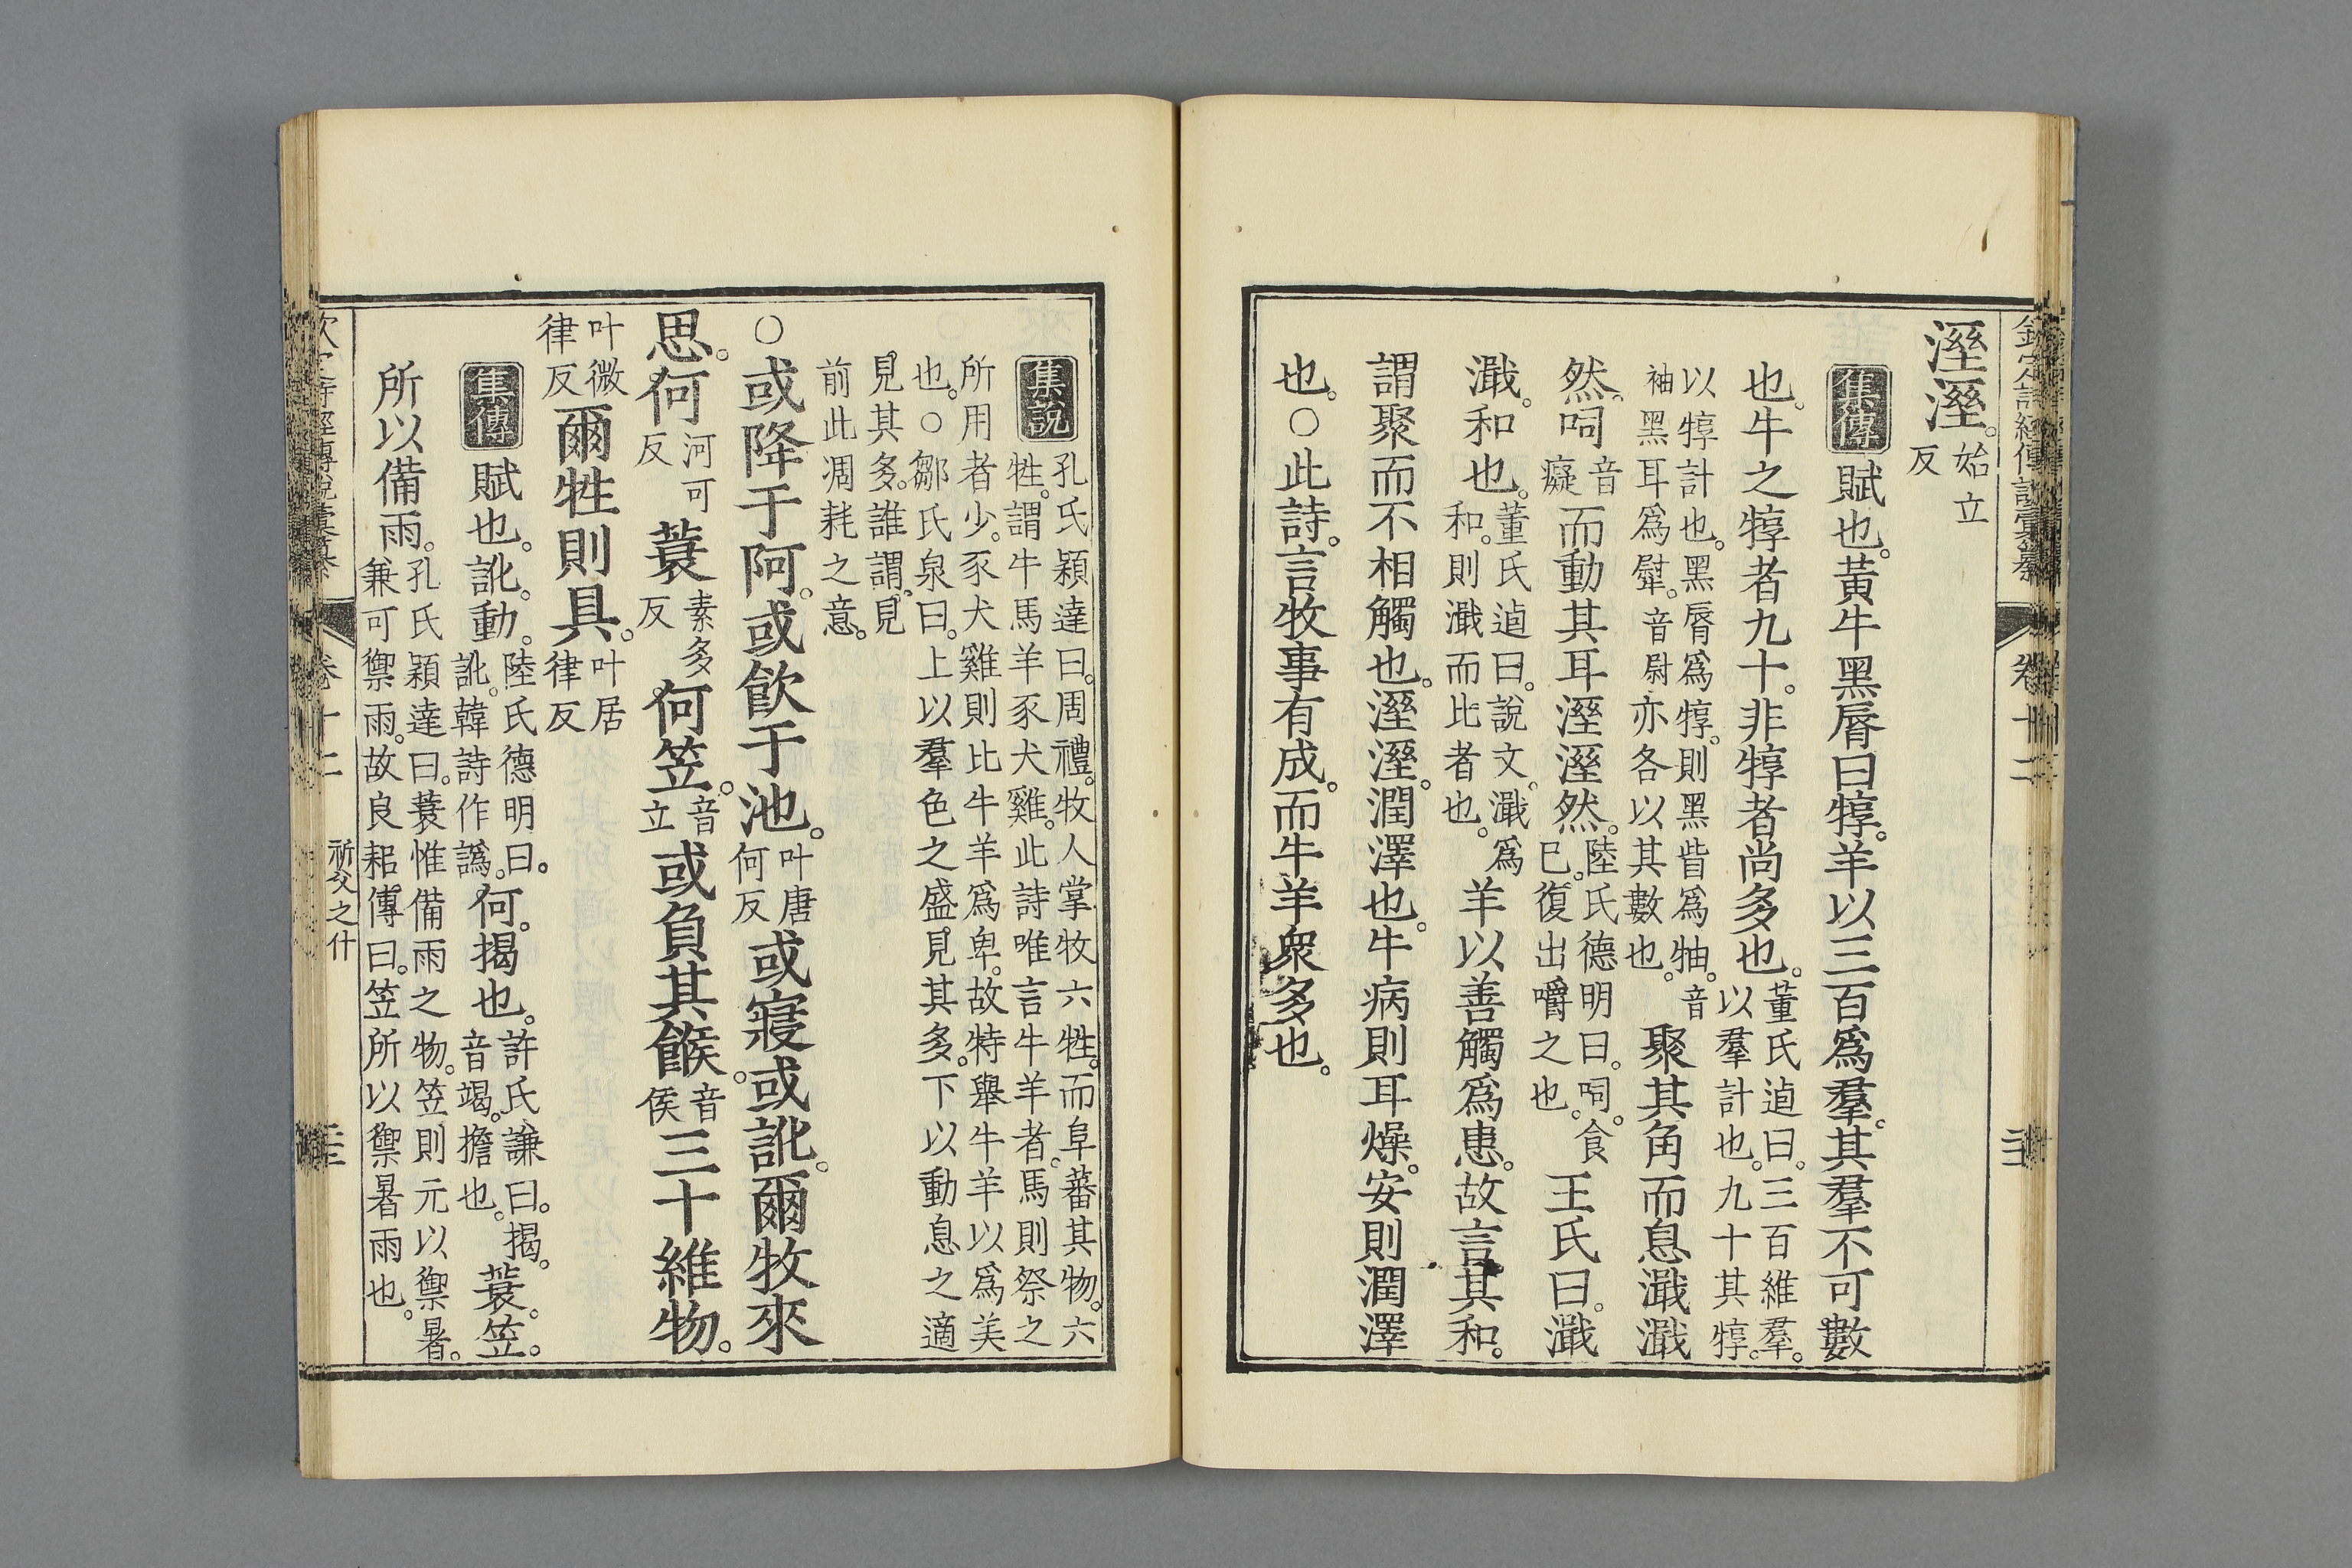 欽定詩經傳說彙纂 卷十二
溼溼。始立反
集傳 賦也。黃牛黑脣曰犉。羊以三百爲羣。其羣不可數
也。牛之犉者九十。非犉者尚多也。董氏逌曰。三百維羣。以羣計也。九十其犉。
以犉計也。黑脣爲犉。則黑眥爲牰。音袖黑耳爲犚。音尉亦各以其數也。聚其角而息濈濈
然。呞音癡而動其耳溼溼然。陸氏德明曰。呞。食已。復出嚼之也。王氏曰。濈
濈。和也。董氏逌曰。說文。濈爲和。則濈而比者也。羊以善觸爲患。故言其和。
謂聚而不相觸也。溼溼。潤澤也。牛病則耳燥。安則潤澤
也。○此詩。言牧事有成。而牛羊衆多也。
集說 孔氏穎達曰。周禮。牧人掌牧六牲。而阜蕃其物。六
牲。謂牛馬羊豕犬雞。此詩唯言牛羊者。馬則祭之
所用者少。豕犬雞則比牛羊爲卑。故特舉牛羊以爲美
也。○鄒氏泉曰。上以羣色之盛。見其多。下以動息之適
見其多。誰謂。見
前此凋耗之意。
○或降于阿。或飲于池。叶唐何反或寢或訛。爾牧來
思。何河可反蓑素多反何笠。音立或負其餱。音侯三十維物。
叶微律反爾牲則具。叶居律反
集傳 賦也。訛。動。陸氏德明曰。訛。韓詩作譌。何。揭也。許氏謙曰。揭。音竭。擔也。蓑。笠。
所以備雨。孔氏穎達曰。蓑惟備雨之物。笠則元以禦暑。兼可禦雨。故良耜傳曰。笠所以禦暑雨也。
卷十二 祈父之什